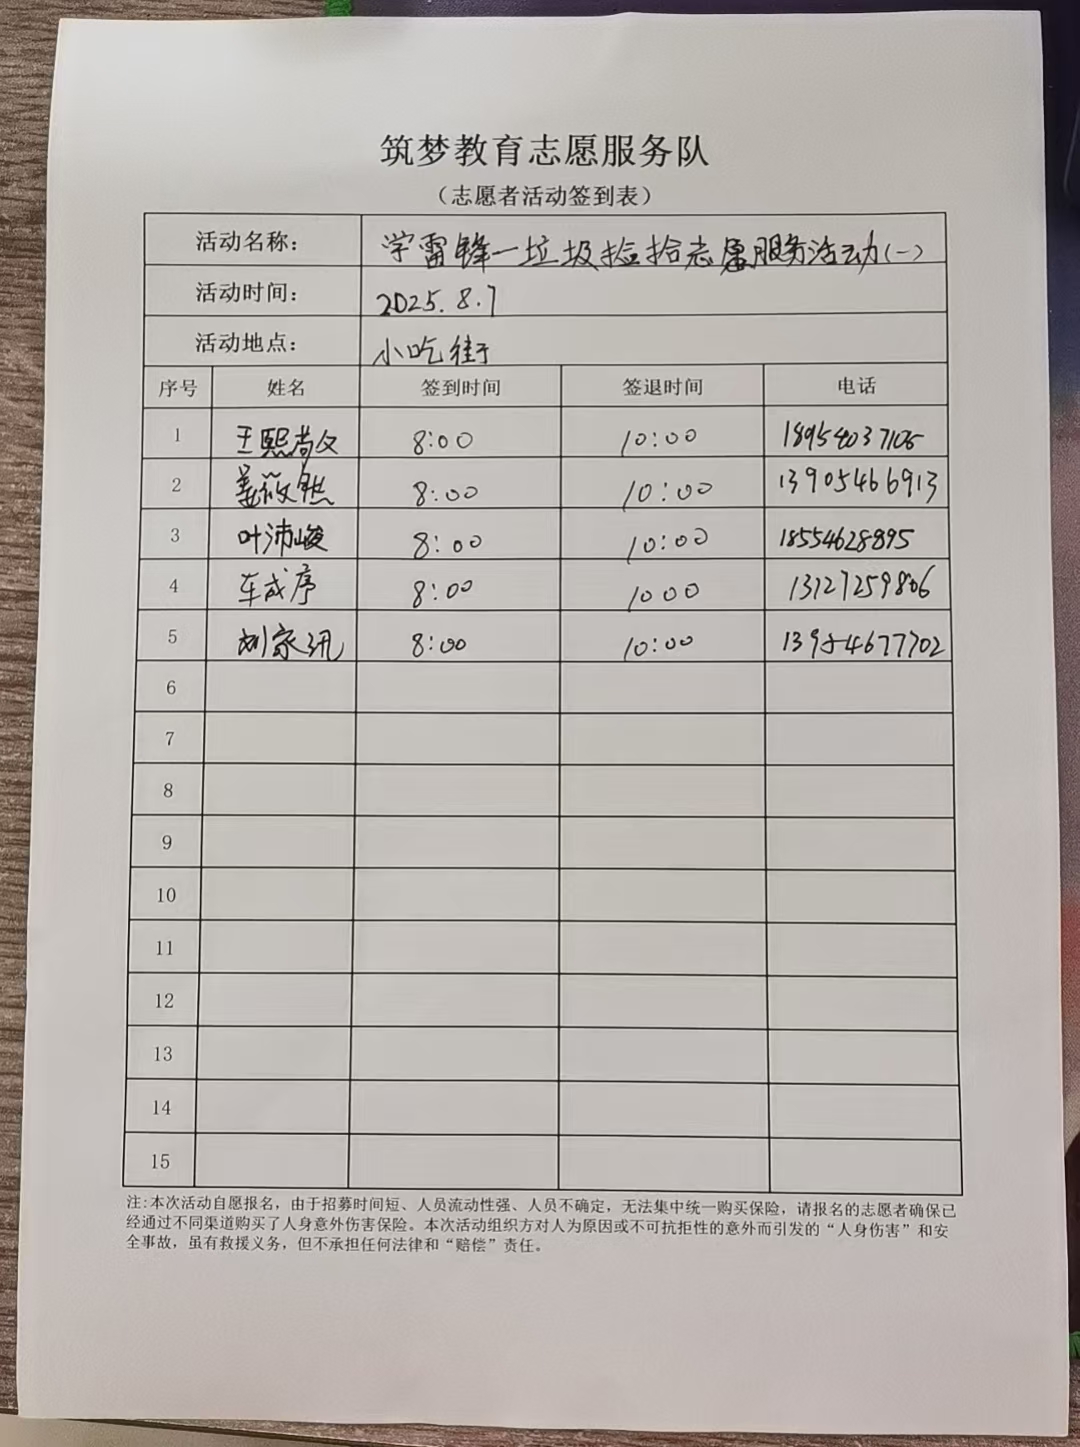 筑梦教育志愿服务队
（志愿者活动签到表）
活动名称： 学雷锋一垃圾捡拾志愿服务活动(一)
活动时间： 2025.8.7
活动地点： 小吃街
序号 姓名 签到时间 签退时间 电话
1 王熙尚文 8:00 10:00 18954037105
2 姜筱然 8:00 10:00 13905466913
3 叶沛峻 8:00 10:00 18554628895
4 车成序 8:00 1000 13127259806
5 刘家讯 8:00 10:00 13954677702
6
7
8
9
10
11
12
13
14
15
注:本次活动自愿报名，由于招募时间短、人员流动性强、人员不确定，无法集中统一购买保险，请报名的志愿者确保已
经通过不同渠道购买了人身意外伤害保险。本次活动组织方对人为原因或不可抗拒性的意外而引发的“人身伤害”和安
全事故，虽有救援义务，但不承担任何法律和“赔偿”责任。